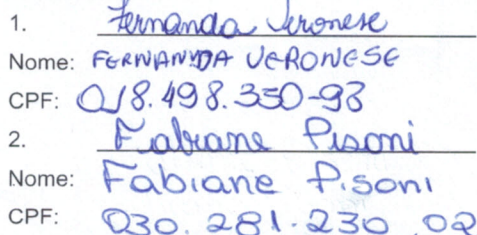 1. Fernanda Veronese
Nome: FERNANDA VERONESE
CPF: 018.498.350-93
2. Fabiane Pisoni
Nome: Fabiane Pisoni
CPF: 030.281.230 02